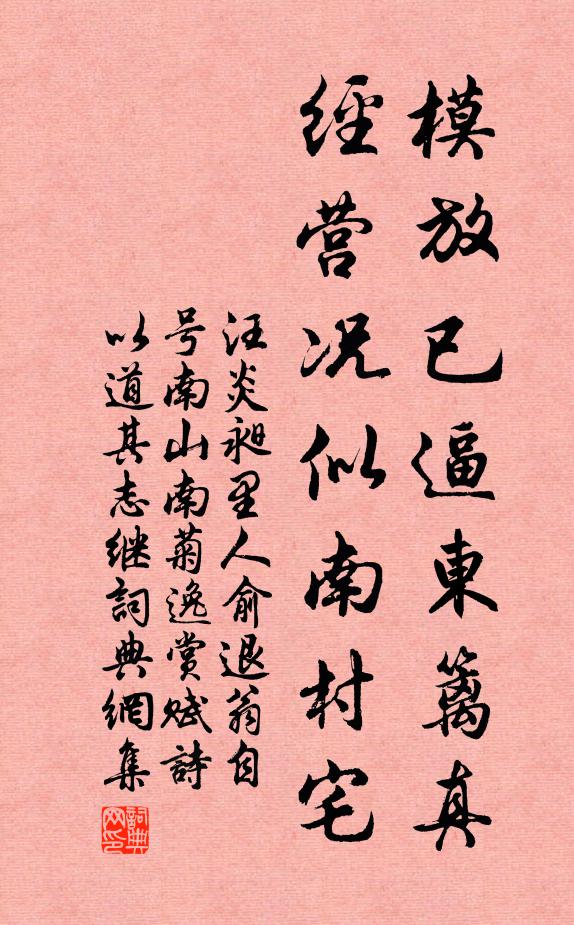 模放已逼東籬真
經营况似南村宅
汪炎昶里人俞退翁自
号南山南菊逸赏赋詩
以道其志继詞典網集
詞典网印